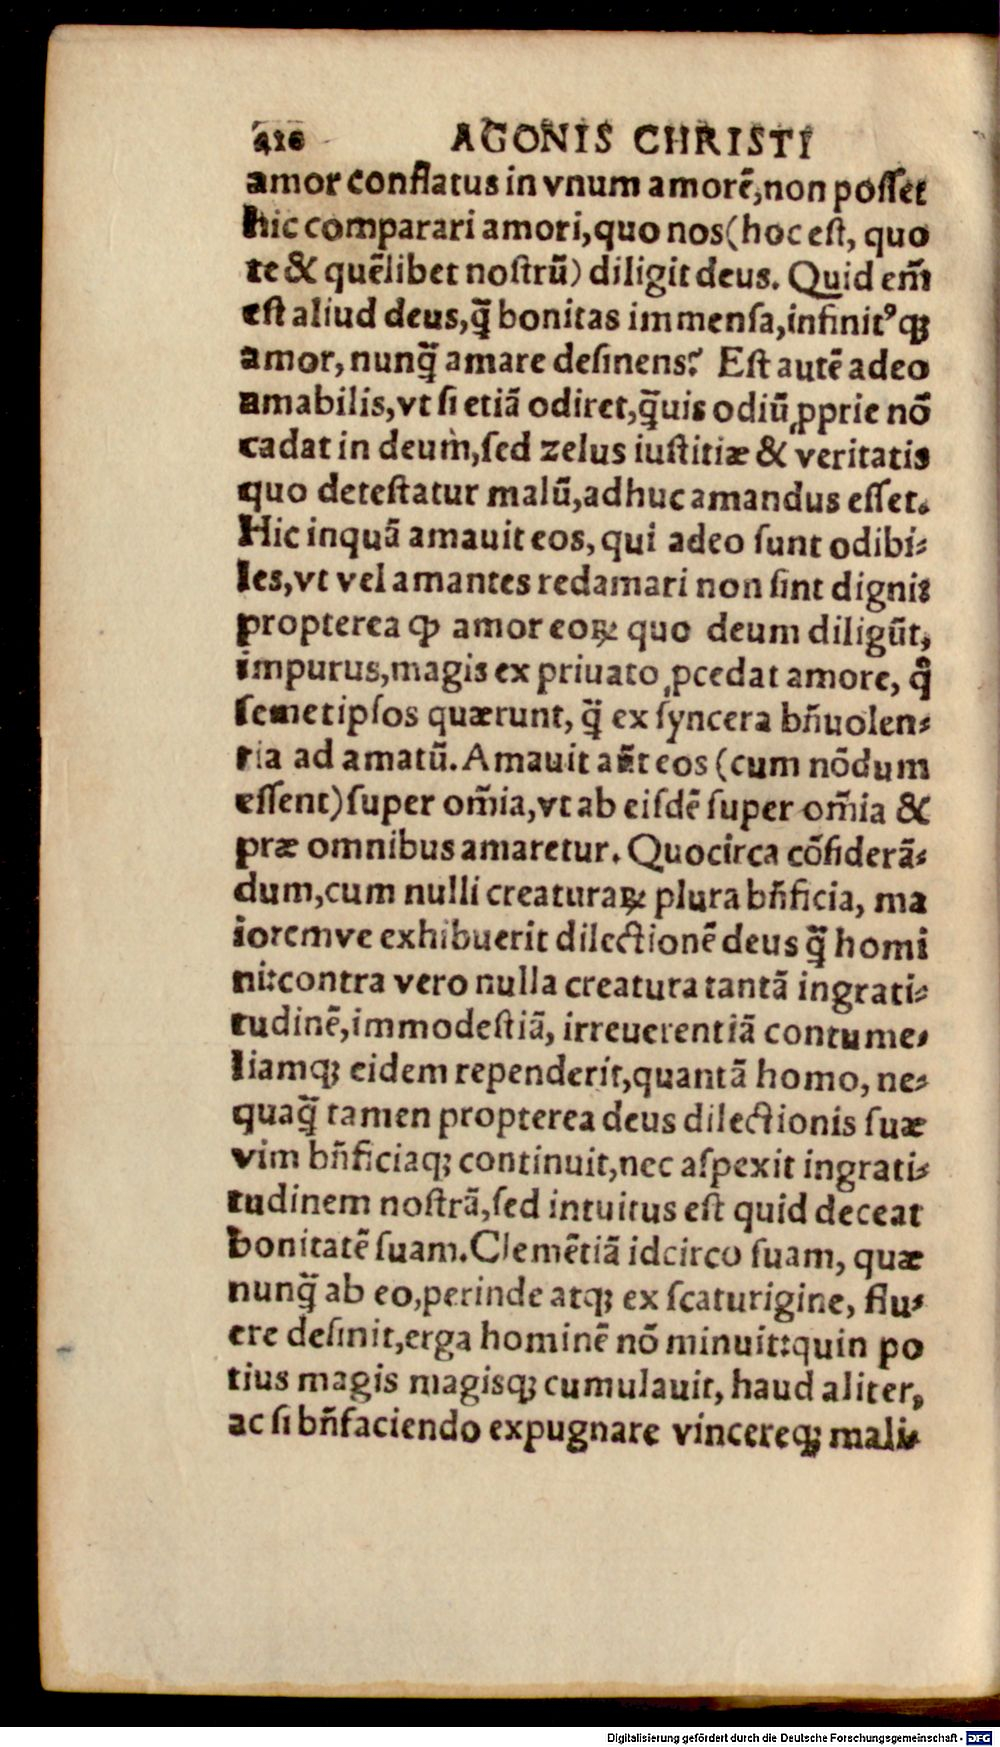 416 AGONIS CHRISTI
amor conflatus in vnum amorẽ, non posſet
hic comparari amori, quo nos (hoc eſt, quo
te & quẽlibet noſtrũ) diligit deus. Quid em̃
eſt aliud deus, q̃ bonitas immenſa, infinitꝰqꝫ
amor, nunq̃ amare deſinens? Eſt autẽ adeo
amabilis, vt ſi etiã odiret, q̃uis odiũ ꝓprie nõ
cadat in deum, ſed zelus iuſtitiæ & veritatis
quo deteſtatur malũ, adhuc amandus eſſet.
Hic inquã amauit eos, qui adeo ſunt odibi⸗
les, vt vel amantes redamari non ſint digni:
propterea ꝙ amor eoꝝ quo deum diligũt,
impurus, magis ex priuato ꝓcedat amore, q̊
ſemetipſos quærunt, q̃ ex ſyncera bñuolen⸗
tia ad amatũ. Amauit aũt eos (cum nõdum
eſſent) ſuper om̃ia, vt ab eiſdẽ ſuper om̃ia &
præ omnibus amaretur. Quocirca cõſiderã⸗
dum, cum nulli creaturaꝝ plura bñficia, ma
ioremve exhibuerit dilectionẽ deus q̃ homi
ni: contra vero nulla creatura tantã ingrati⸗
tudinẽ, immodeſtiã, irreuerentiã contume⸗
liamqꝫ eidem rependerit, quantã homo, ne⸗
quaq̃ tamen propterea deus dilectionis ſuæ
vim bñficiaqꝫ continuit, nec aſpexit ingrati⸗
tudinem noſtrã, ſed intuitus eſt quid deceat
bonitatẽ ſuam. Clemẽtiã idcirco ſuam, quæ
nunq̃ ab eo, perinde atqꝫ ex ſcaturigine, flu⸗
ere deſinit, erga hominẽ nõ minuit: quin po
tius magis magisqꝫ cumulauit, haud aliter,
ac ſi bñfaciendo expugnare vincereqꝫ mali⸗
Digitalisierung gefördert durch die Deutsche Forschungsgemeinschaft - DFG